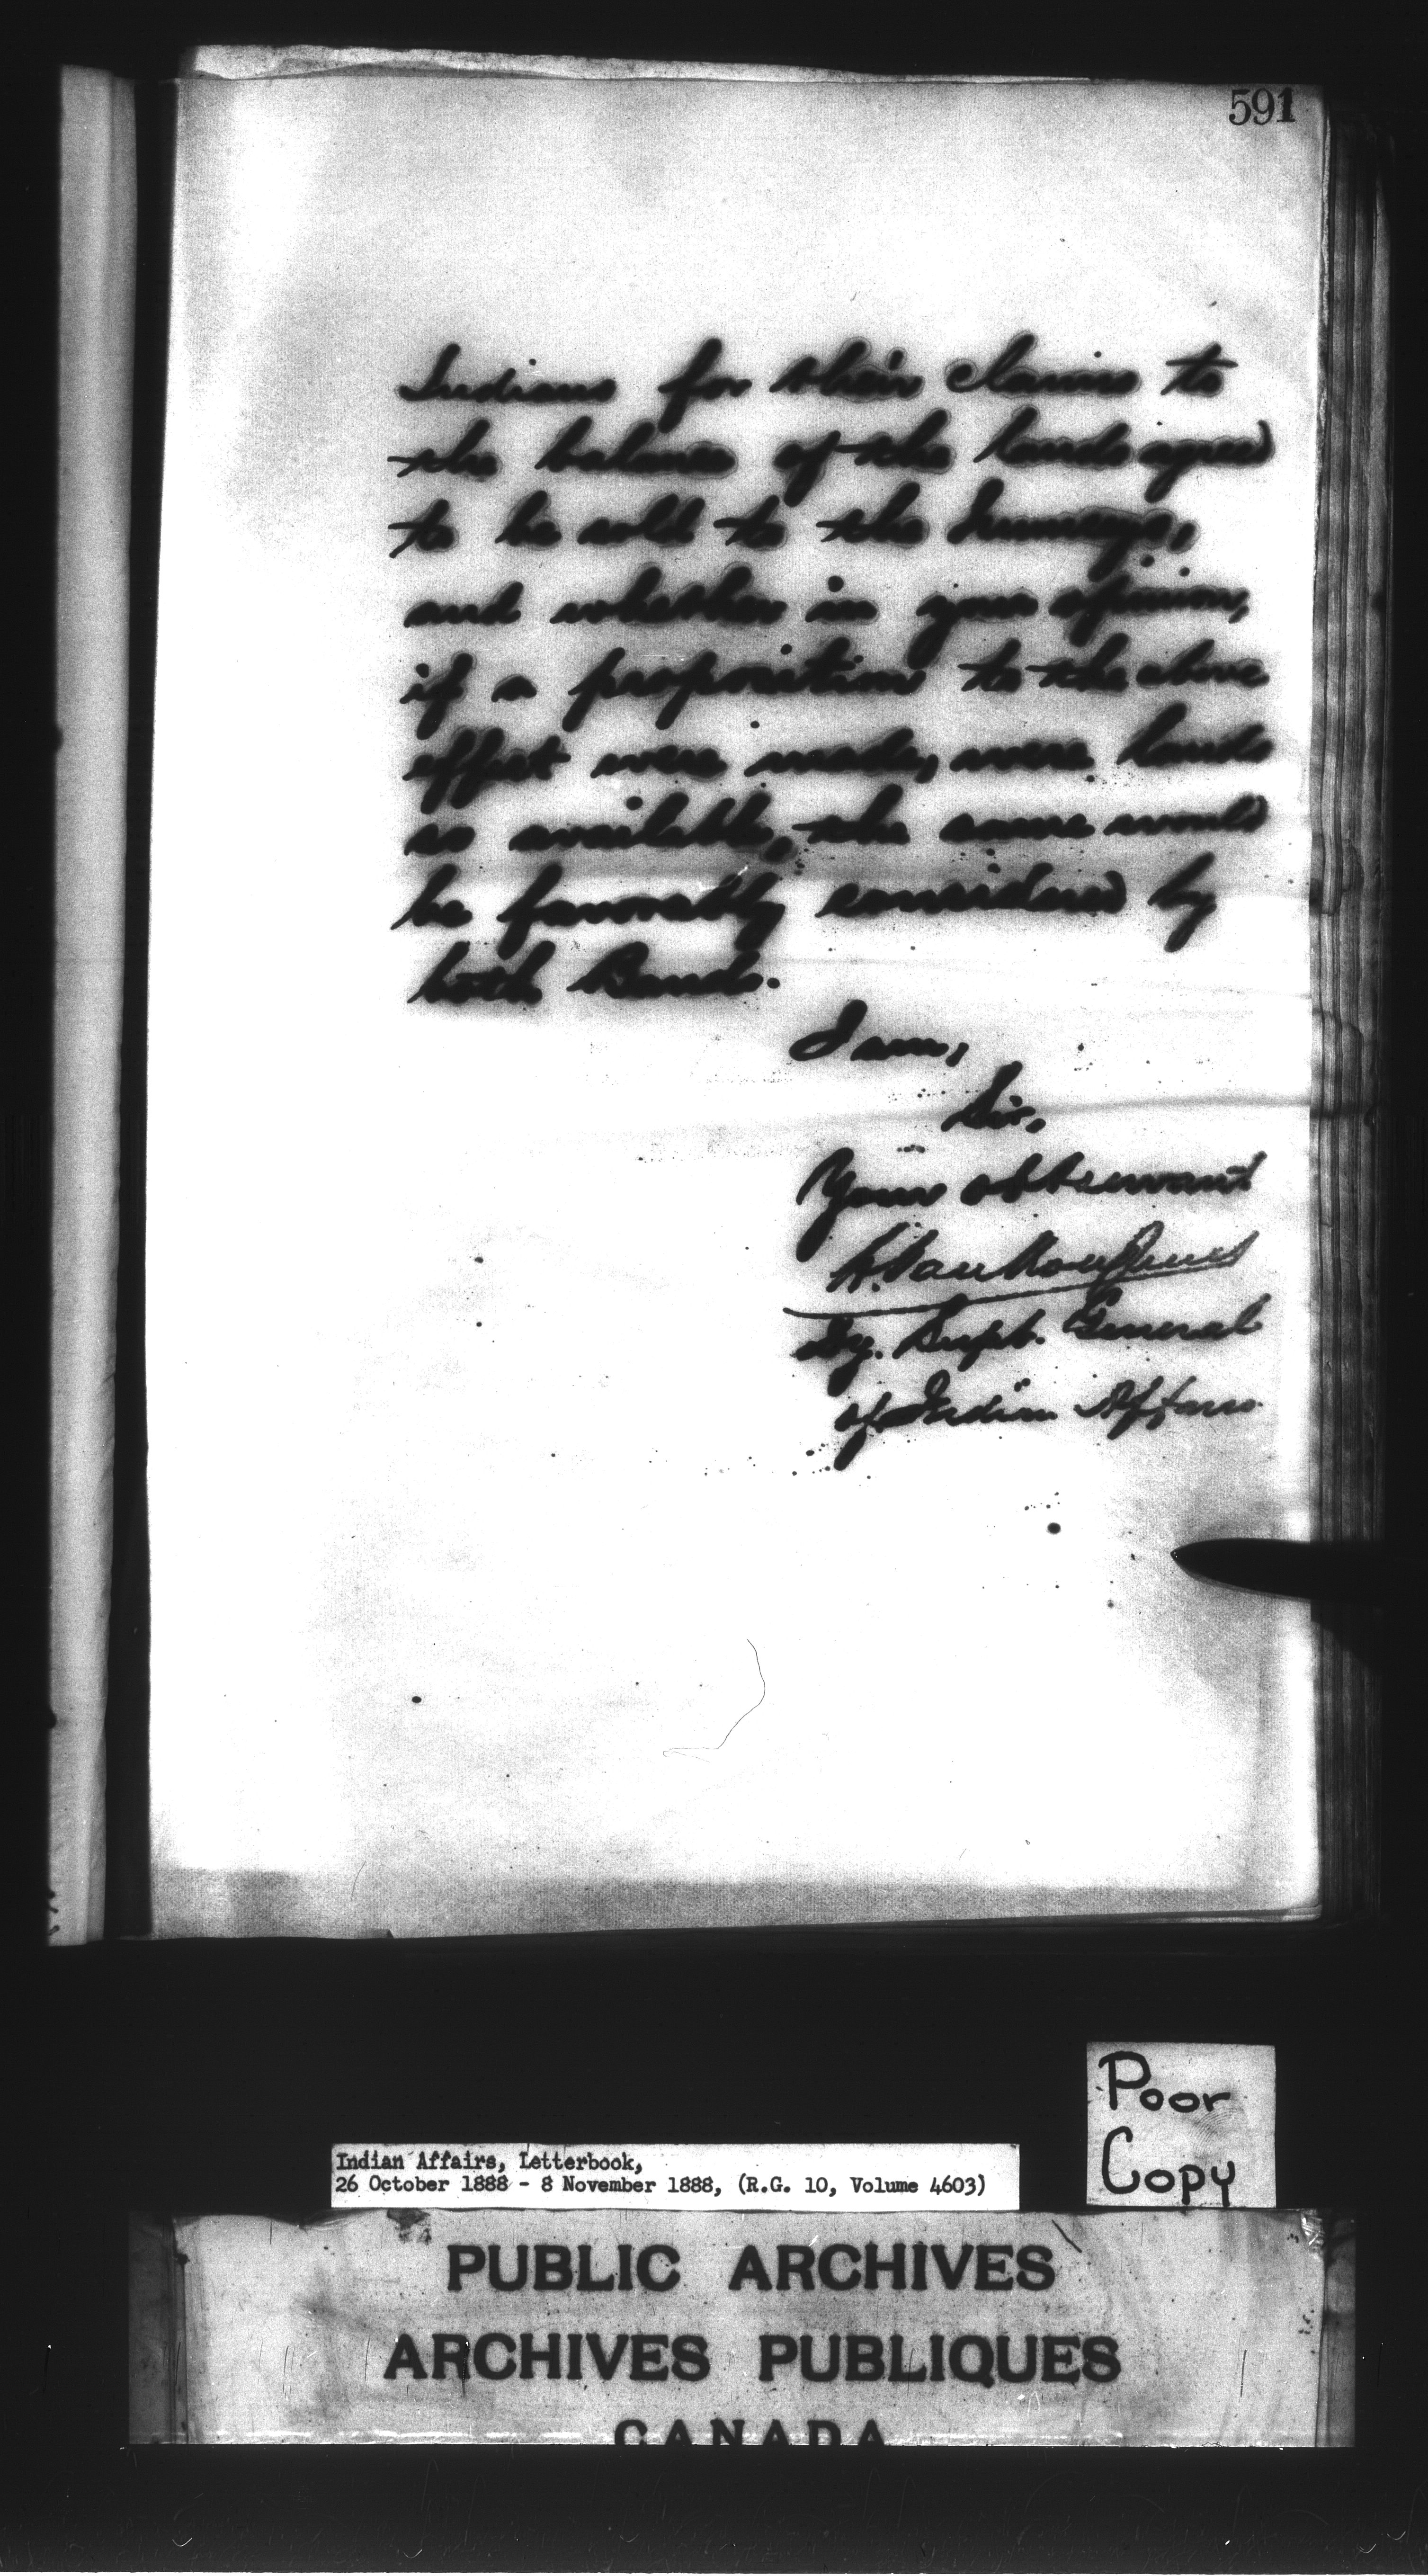 591
Indians for their claims to
the balance of the lands agreed
to be sold to the Munceys,
and whether in your opinion,
if a proposition to the above
effect were made, were lands
so available, the same would
be favorably considered by
both Bands.
I am,
Sir,
Your obt servant
L. Vankoughnet
Dy. Supt. General
of Indian Affairs
Poor
Copy
Indian Affairs, Letterbook,
26 October 1888 - 8 November 1888, (R.G. 10, Volume 4603)
PUBLIC ARCHIVES
ARCHIVES PUBLIQUES
CANADA